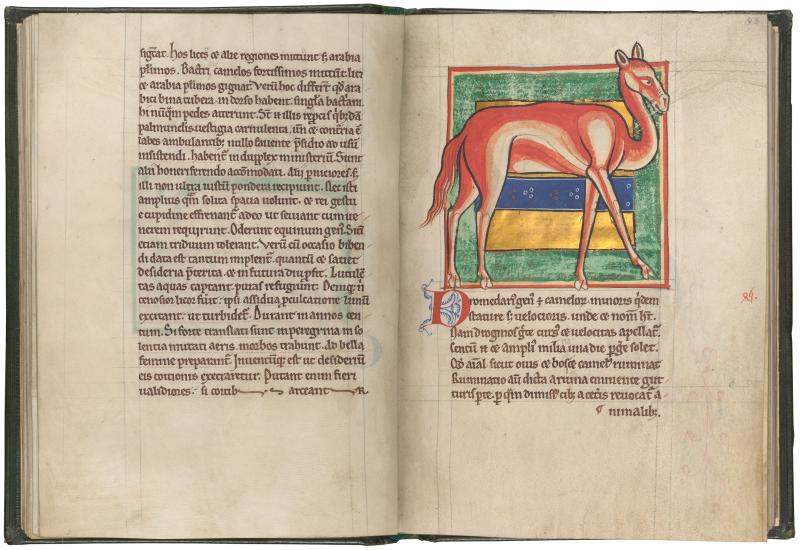 sig͛at. hos licet ⁊ alie regiones mittunt s; arabia
plurimos. Bactri camelos fortissimos mittunt. licet
⁊ arabia plurimos gignat. Verum hoc differt qd ara
bici bina tubera in dorso habent. singula bactriani.
hi nunqm pedes atterunt. St ̄ ⁊ illis
palmunculis uestigia carnulenta. ⁊ contraria ē
labes ambulantib; nullo fauente p̄sidio ad
insistendi. habent̄ in duplex ministeriū. Sunt
alii honeri ferendo accōmodati. Alii p̄niciores. s;
illi non ultra iustum pondera recipiunt. nec isti
amplius qm solita spacia uolunt. ⁊ gestu
⁊ cupidine effrenant̄ adeo ut seuiant cum ue
nerem requirunt. Oderunt equinum gen͛. Sitī
etiam triduum tolerant. Verū cū occasio biben
di data est tantum implent̄. quantū ⁊ satiet
desideria p̄terita. ⁊ in futura diu p̄sit. Lutulen
tas aquas captant. puras refugiunt. Deniq; n̄
cenosior licor fuit. ipsi assidua p̄culcatione limū
excitant. ut turbidet̄. Durant in annos cen
tum. Si forte translati sunt in peregrina in so
lentia mutati aeris. morbos trahunt. Ad bella
femine preparant̄. Inuentumq; est ut desideriū
eis coitionis execraretur. Putant enim fieri
ualidiores. si coitib; arceant R
Dromedari͛ gen͛ ⁊ camelor͛ minoris q̄dem
stature s; uelocioris. unde ⁊ nom̄ ht̄.
Nam dromos grece curs͛ ⁊ uelocitas apellat̄.
Centū n̄ ⁊ ampli͛ milia una die p̄ge solet.
Qd aīal sicut ouis ⁊ bos ⁊ camel͛ ruminat
Ruminatio aū dicta a ruma eminente gut
turis pte. p qm dimiss͛ cib; a c̄tis reuocat̄ a
nimalib;.